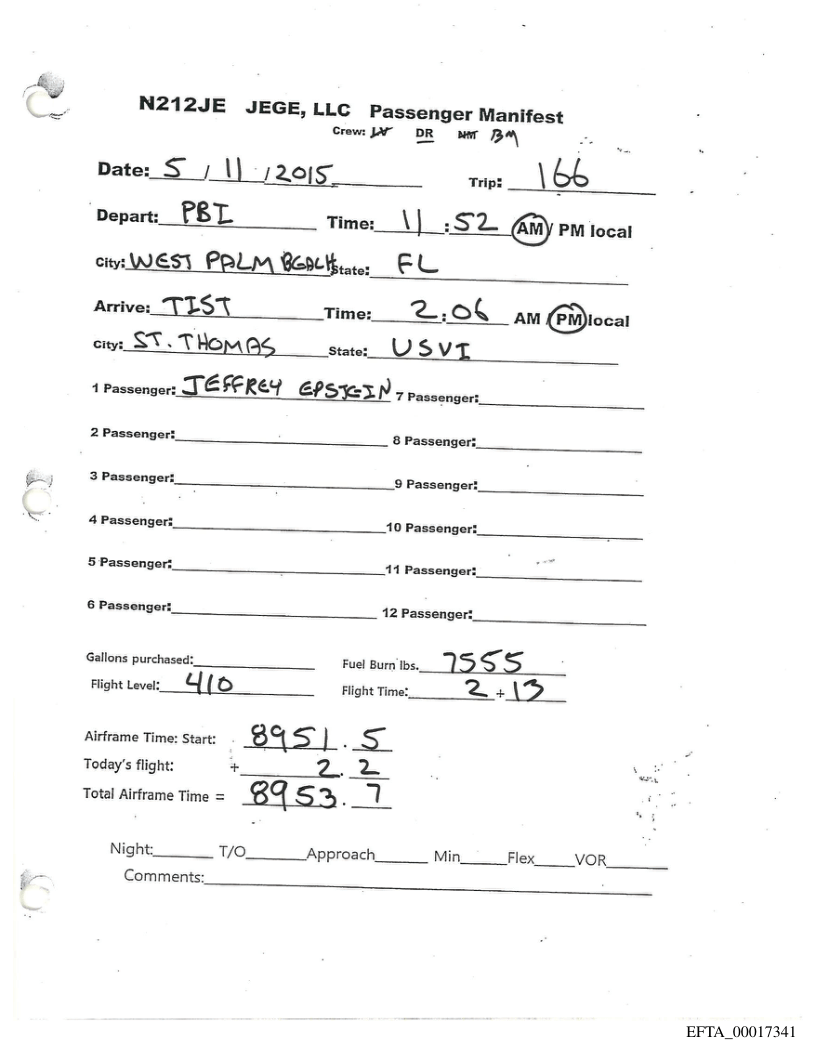 N212JE JEGE, LLC Passenger Manifest
Crew: DR BM
Date: 5 / 11 / 2015 Trip: 166
Depart: PBI Time: 11 : 52 AM / PM local
City: WEST PALM BEACH State: FL
Arrive: TIST Time: 2 : 06 AM / PM local
City: ST. THOMAS State: USVI
1 Passenger: JEFFREY EPSTEIN 7 Passenger:
2 Passenger: 8 Passenger:
3 Passenger: 9 Passenger:
4 Passenger: 10 Passenger:
5 Passenger: 11 Passenger:
6 Passenger: 12 Passenger:
Gallons purchased: Fuel Burn lbs. 7555
Flight Level: 410 Flight Time: 2 + 13
Airframe Time: Start: 8951 . 5
Today's flight: + 2 . 2
Total Airframe Time = 8953 . 7
Night: T/O Approach Min Flex VOR
Comments:
EFTA_00017341